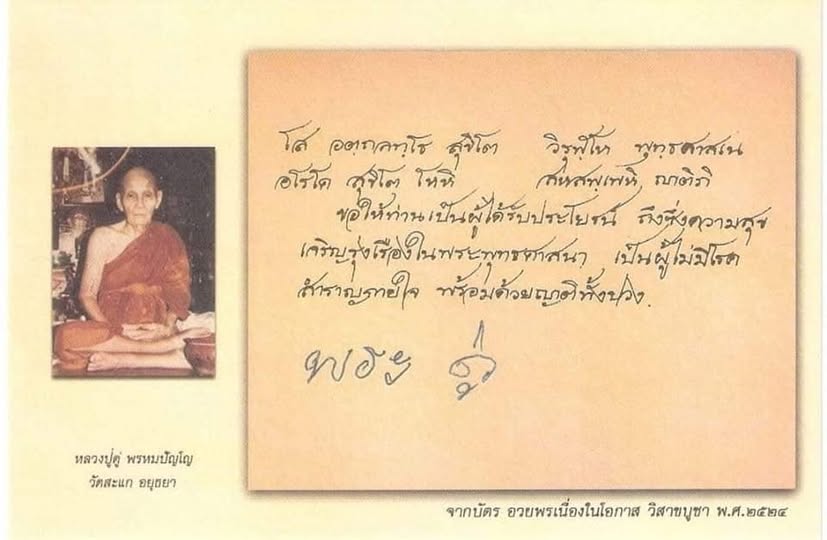 โส อตฺถลทฺโธ สุขิโต วิรุฬฺโห พุทฺธสาสเน
อโรโค สุขิโต โหหิ สหสพฺเพหิ ญาติภิ
ขอให้ท่านเป็นผู้ได้รับประโยชน์ ถึงซึ่งความสุข
เจริญรุ่งเรืองในพระพุทธศาสนา เป็นผู้ไม่มีโรค
สำราญกายใจ พร้อมด้วยญาติทั้งปวง.
ดู่
หลวงปู่ดู่ พรหมปัญโญ
วัดสะแก อยุธยา
จากบัตร อวยพรเนื่องในโอกาส วิสาขบูชา พ.ศ.๒๕๒๔